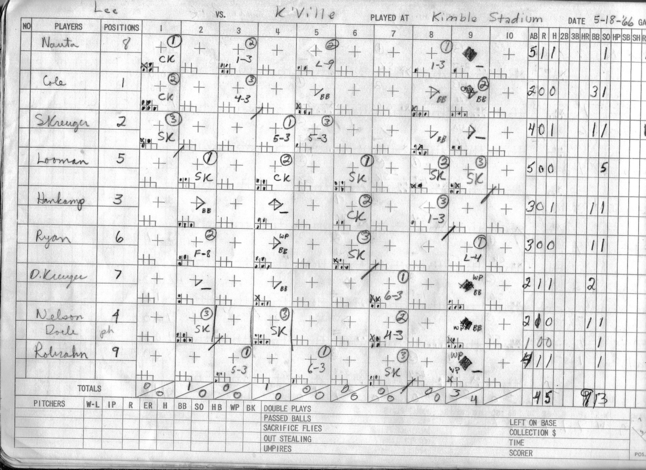 Lee VS. K'Ville PLAYED AT Kimble Stadium DATE 5-18-66 GA
NO PLAYERS POSITIONS 1 2 3 4 5 6 7 8 9 10 AB R H 2B 3B HR BB SO HP SB SH
Nauta 8 1 CK 2 1-3 2 L-9 1 1-3 5 1 1 1
Cole 1 2 CK 3 4-3 BB BB 2 BB 2 0 0 3 1
S Kreuger 2 3 SK 1 5-3 3 5-3 BB 4 0 1 1 1
Looman 5 1 SK 2 CK 1 SK 2 SK 3 SK 5 0 0 5
Hankamp 3 BB 2 CK 3 1-3 3 0 1 1 1
Ryan 6 2 F-8 WP BB 3 SK 1 L-4 3 0 0 1 1
D. Kreuger 7 BB 1 6-3 WP BB 2 1 1 2
Nelson 4 3 SK 3 SK 2 4-3 BB 2 1 0 1 1
ph 1 0 0 1
9 1 5-3 1 6-3 3 SK WP 1 1 1
TOTALS 0/0 1/0 0/0 1/0 0/0 0/0 0/0 0/0 3/4 4 5 13
PITCHERS W-L IP R ER H BB SO HB WP BK DOUBLE PLAYS
PASSED BALLS
SACRIFICE FLIES LEFT ON BASE
OUT STEALING COLLECTION $
UMPIRES TIME
SCORER